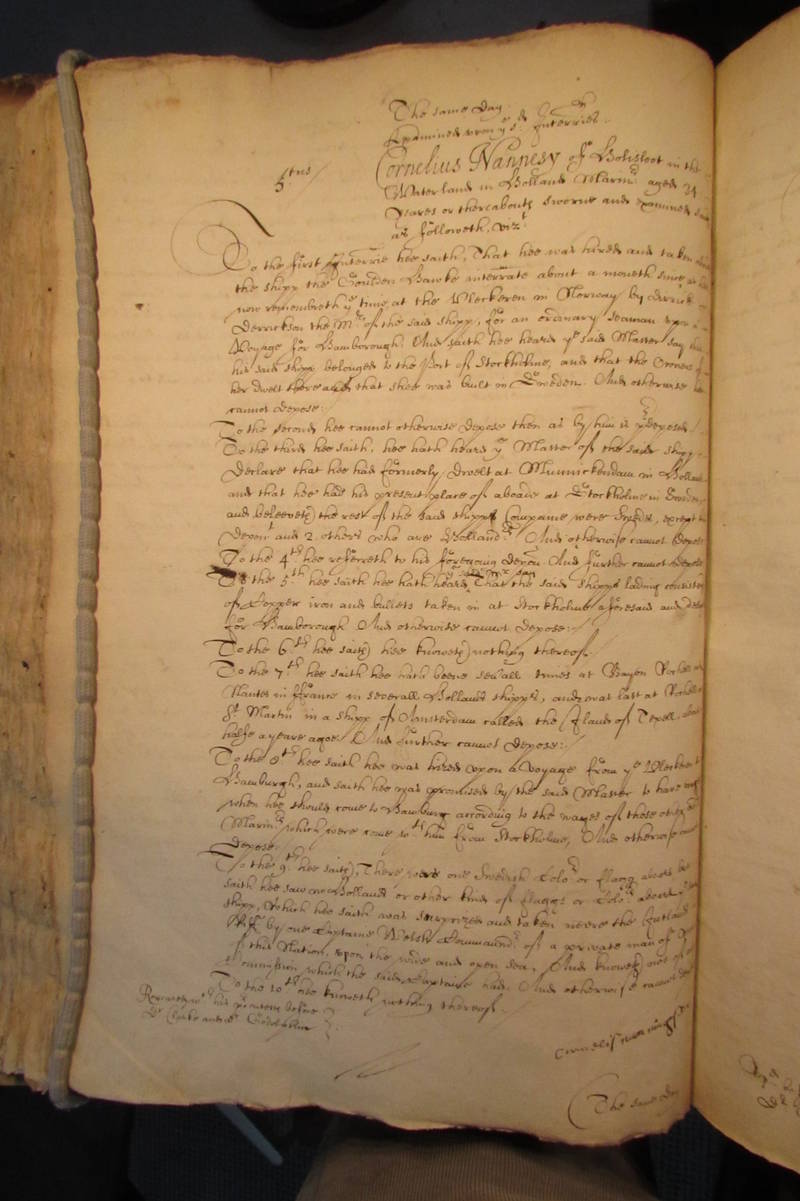 The same day
Examined upon ye sd Interries
5tus
Cornelius Nannesy of Holisloot in the
Waterland in Holland Marinr aged 24
yeares or thereabouts sworne and examined
as followeth. vizt
To the first Interrie hee saith, That hee was hired and taken
the shipp the Goulden Hawke interrate about a moneth since
now remembreth ye time at the Vleckeren in Norway by
Derrickson the Mr of the said shipp, for an ordinary seaman upon
Voyage for Hamborough. And saith hee heard ye said Master say
his said shipp belonged to the Port of Stockholme, and that the Owners
her dwelt there and that shee was built in Sweden. And otherwise
cannot depose:
To the second hee cannot otherwise depose then as by him is predeposed.
To the third hee saith, hee hath heard ye Master of the said shipp
declare that hee had formerly dwelt at Munnickendam in Holland
and that hee had his present place of aboade at Stockholme in Sweden
and beleeveth the rest of the said shipps Companie were Swedes, except
Depont and 2 others who are Hollandrs. And otherwise cannot depose
To the 4th hee referreth to his foregoing deposn And further cannot depose
ye said Mr say
To the 5th hee saith hee hath heard That the said shipps lading consisted
of Copper iron and bullets taken in at Stockholme aforesaid and
for Hamborough And otherwise cannot depose:
To the 6th hee saith hee knoweth nothing thereof.
To the 7th hee saith hee hath beene severall times at Bayon Rochell
Nantes in France in severall Hollands shipps, and was last at Rochell
St Martin in a shipp of Amsterdam called the Island of Texell, about
halfe a yeare agoe. And further cannot depose:
To the 8th hee saith hee was hired upon a Voyage from ye Vleckeren
Hamburgh, and saith hee was promised by the said Master to have
when hee should come to Hamburg according to the wages of those other
Marinrs which were come with him from Stockholme, And otherwise
depose.
To the 9th hee saith, There were one Swedish Color or flagg aboard
saith hee saw noe Hollands or other kind of flaggs or Colors aboard
shipp, Which hee saith was surprized and taken neere the Jutland
Riff by one Captaine Welsh Commandr of a private man of
of this Nation, upon the wide and open sea, And knoweth not of
Commission which the said Captaine had. And otherwise cannot
To the 10th hee knoweth nothing thereof.
Repeated with his precontests before
Dr Clerke and Dr Godolphin
Cornelis nannings
The same day